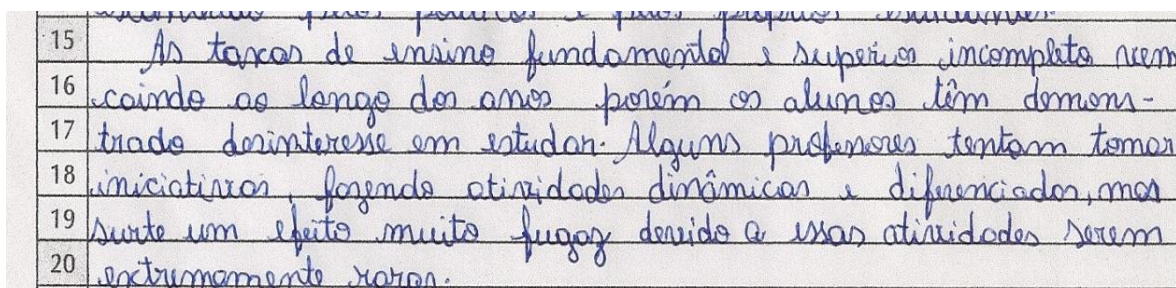 15 As taxas de ensino fundamental e superior incompleto vem
16 caindo ao longo dos anos porém os alunos têm demons-
17 trado desinteresse em estudar. Alguns professores tentam tomar
18 iniciativas, fazendo atividades dinâmicas e diferenciadas, mas
19 surte um efeito muito fugaz devido a essas atividades serem
20 extremamente raras.